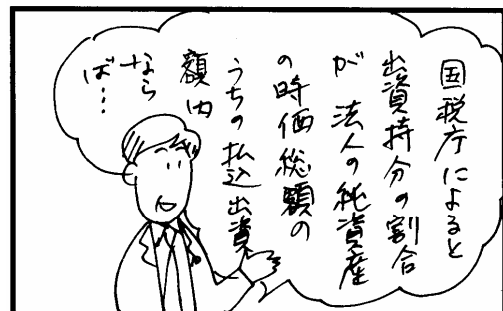 国税庁によると
出資持分の割合
が法人の純資産
の時価総額の
うちの払込出資
額内
なら
ば…